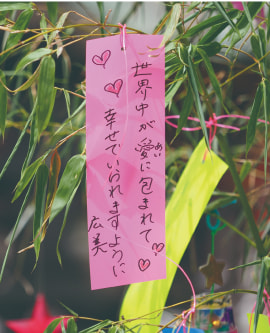 世界中が愛に包まれて、
あい
幸せでいられますように
広美